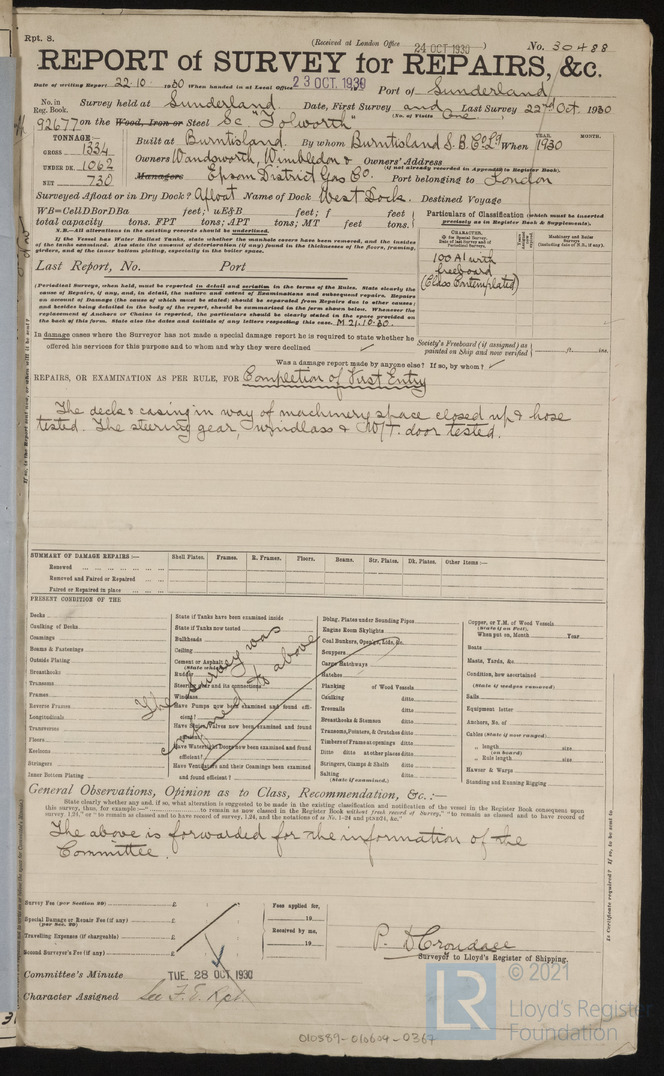 Rpt. 8.
(Received at London Office 24 OCT 1930)
No. 30488
REPORT of SURVEY for REPAIRS, &c.
Date of writing Report 22.10. 1930 When handed in at Local Office 23 OCT. 1930 Port of Sunderland
No. in Reg. Book.
Survey held at Sunderland. Date, First Survey and Last Survey 22nd Oct. 1930
(No. of Visits One)
92677 on the Wood, Iron or Steel Sc "Tolworth"
TONNAGE:—
GROSS 1334
UNDER DK. 1062
NET 730
Built at Burntisland By whom Burntisland S.B. Co. Ld When
YEAR. 1930 MONTH.
Owners Wandsworth, Wimbledon & Owners' Address
(if not already recorded in Appendix to Register Book)
Managers Epsom District Gas Co. Port belonging to London
Surveyed Afloat or in Dry Dock? Afloat Name of Dock West Dock. Destined Voyage
WB=CellDBorDBa feet; uE&B feet; f feet
total capacity tons. FPT tons; APT tons; MT feet tons.
N.B.—All alterations in the existing records should be underlined.
If the Vessel has Water Ballast Tanks, state whether the manhole covers have been removed, and the insides of the tanks examined. Also state the amount of deterioration (if any) found in the thicknesses of the floors, framing, girders, and of the inner bottom plating, especially in the boiler space.
Particulars of Classification (which must be inserted precisely as in Register Book & Supplements).
CHARACTER.
100 A1 with
freeboard
(Class Contemplated)
Last Report, No. Port
(Periodical Surveys, when held, must be reported in detail and seriatim in the terms of the Rules. State clearly the cause of Repairs, if any, and, in detail, the nature and extent of Examinations and subsequent repairs. Repairs on account of Damage (the cause of which must be stated) should be separated from Repairs due to other causes; and besides being detailed in the body of the report, should be summarized in the form shown below. Whenever the replacement of Anchors or Chains is reported, the particulars should be clearly stated in the space provided on the back of this form. State also the dates and initials of any letters respecting this case. M.21.10.30.
In damage cases where the Surveyor has not made a special damage report he is required to state whether he offered his services for this purpose and to whom and why they were declined
Society's Freeboard (if assigned) as painted on Ship and now verified ft. ins.
Was a damage report made by anyone else? If so, by whom?
REPAIRS, OR EXAMINATION AS PER RULE, FOR Completion of First Entry
The decks & casing in way of machinery space closed up & hose
tested. The steering gear, windlass & W/T. door tested.
SUMMARY OF DAMAGE REPAIRS:— Shell Plates. Frames. R. Frames. Floors. Beams. Str. Plates. Dk. Plates. Other Items:—
Renewed
Removed and Faired or Repaired
Faired or Repaired in place
PRESENT CONDITION OF THE
Decks
Caulking of Decks
Coamings
Beams & Fastenings
Outside Plating
Breasthooks
Transoms
Frames
Reverse Frames
Longitudinals
Transverses
Floors
Keelsons
Stringers
Inner Bottom Plating
State if Tanks have been examined inside
State if Tanks now tested
Bulkheads
Ceiling
Cement or Asphalt
Rudder
Steering gear and its connections
Windlass
Have Pumps now been examined and found efficient?
Have Sluice Valves now been examined and found efficient?
Have Watertight Doors now been examined and found efficient?
Have Ventilators and their Coamings been examined and found efficient?
The survey was
confined to above
Dblng. Plates under Sounding Pipes
Engine Room Skylights
Coal Bunkers, Openings, Lids, &c.
Scuppers
Cargo Hatchways
Hatches
Planking of Wood Vessels
Caulking ditto
Treenails ditto
Breasthooks & Stemson ditto
Transoms, Pointers, & Crutches ditto
Timbers of Frame at openings ditto
Ditto ditto at other places ditto
Stringers, Clamps & Shelfs ditto
Salting ditto
(State if examined.)
Copper, or Y.M. of Wood Vessels
(State if on Felt).
When put on, Month Year
Boats
Masts, Yards, &c.
Condition, how ascertained
(State if wedges removed)
Sails
Equipment letter
Anchors, No. of
Cables (State if now ranged)
" length size
(on board)
" Rule length size
Hawser & Warps
Standing and Running Rigging
General Observations, Opinion as to Class, Recommendation, &c.:—
State clearly whether any and, if so, what alteration is suggested to be made in the existing classification and notification of the vessel in the Register Book consequent upon this survey, thus, for example:—" to remain as now classed in Register Book without fresh record of Survey," "to remain as classed and to have record of survey 1,24," or "to remain as classed and to have record of survey, 1,24, and the notations of ss No. 1-24 and ptND24, &c."
The above is forwarded for the information of the
Committee.
Survey Fee (per Section 29) £
Special Damage or Repair Fee (if any) £
(per Sec. 29)
Travelling Expenses (if chargeable) £
Second Surveyor's Fee (if any) £
Fees applied for,
19
Received by me,
19
P. D. Crondace
Surveyor to Lloyd's Register of Shipping.
Committee's Minute TUE. 28 OCT 1930
Character Assigned See F.E. Rpt
© 2021
LR
Lloyd's Register
Foundation
010589-010604-0367